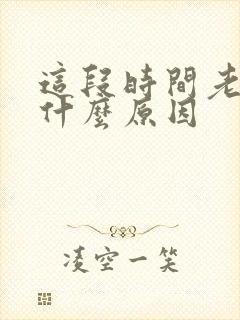 這段時間老
什麼原因
凌空一笑